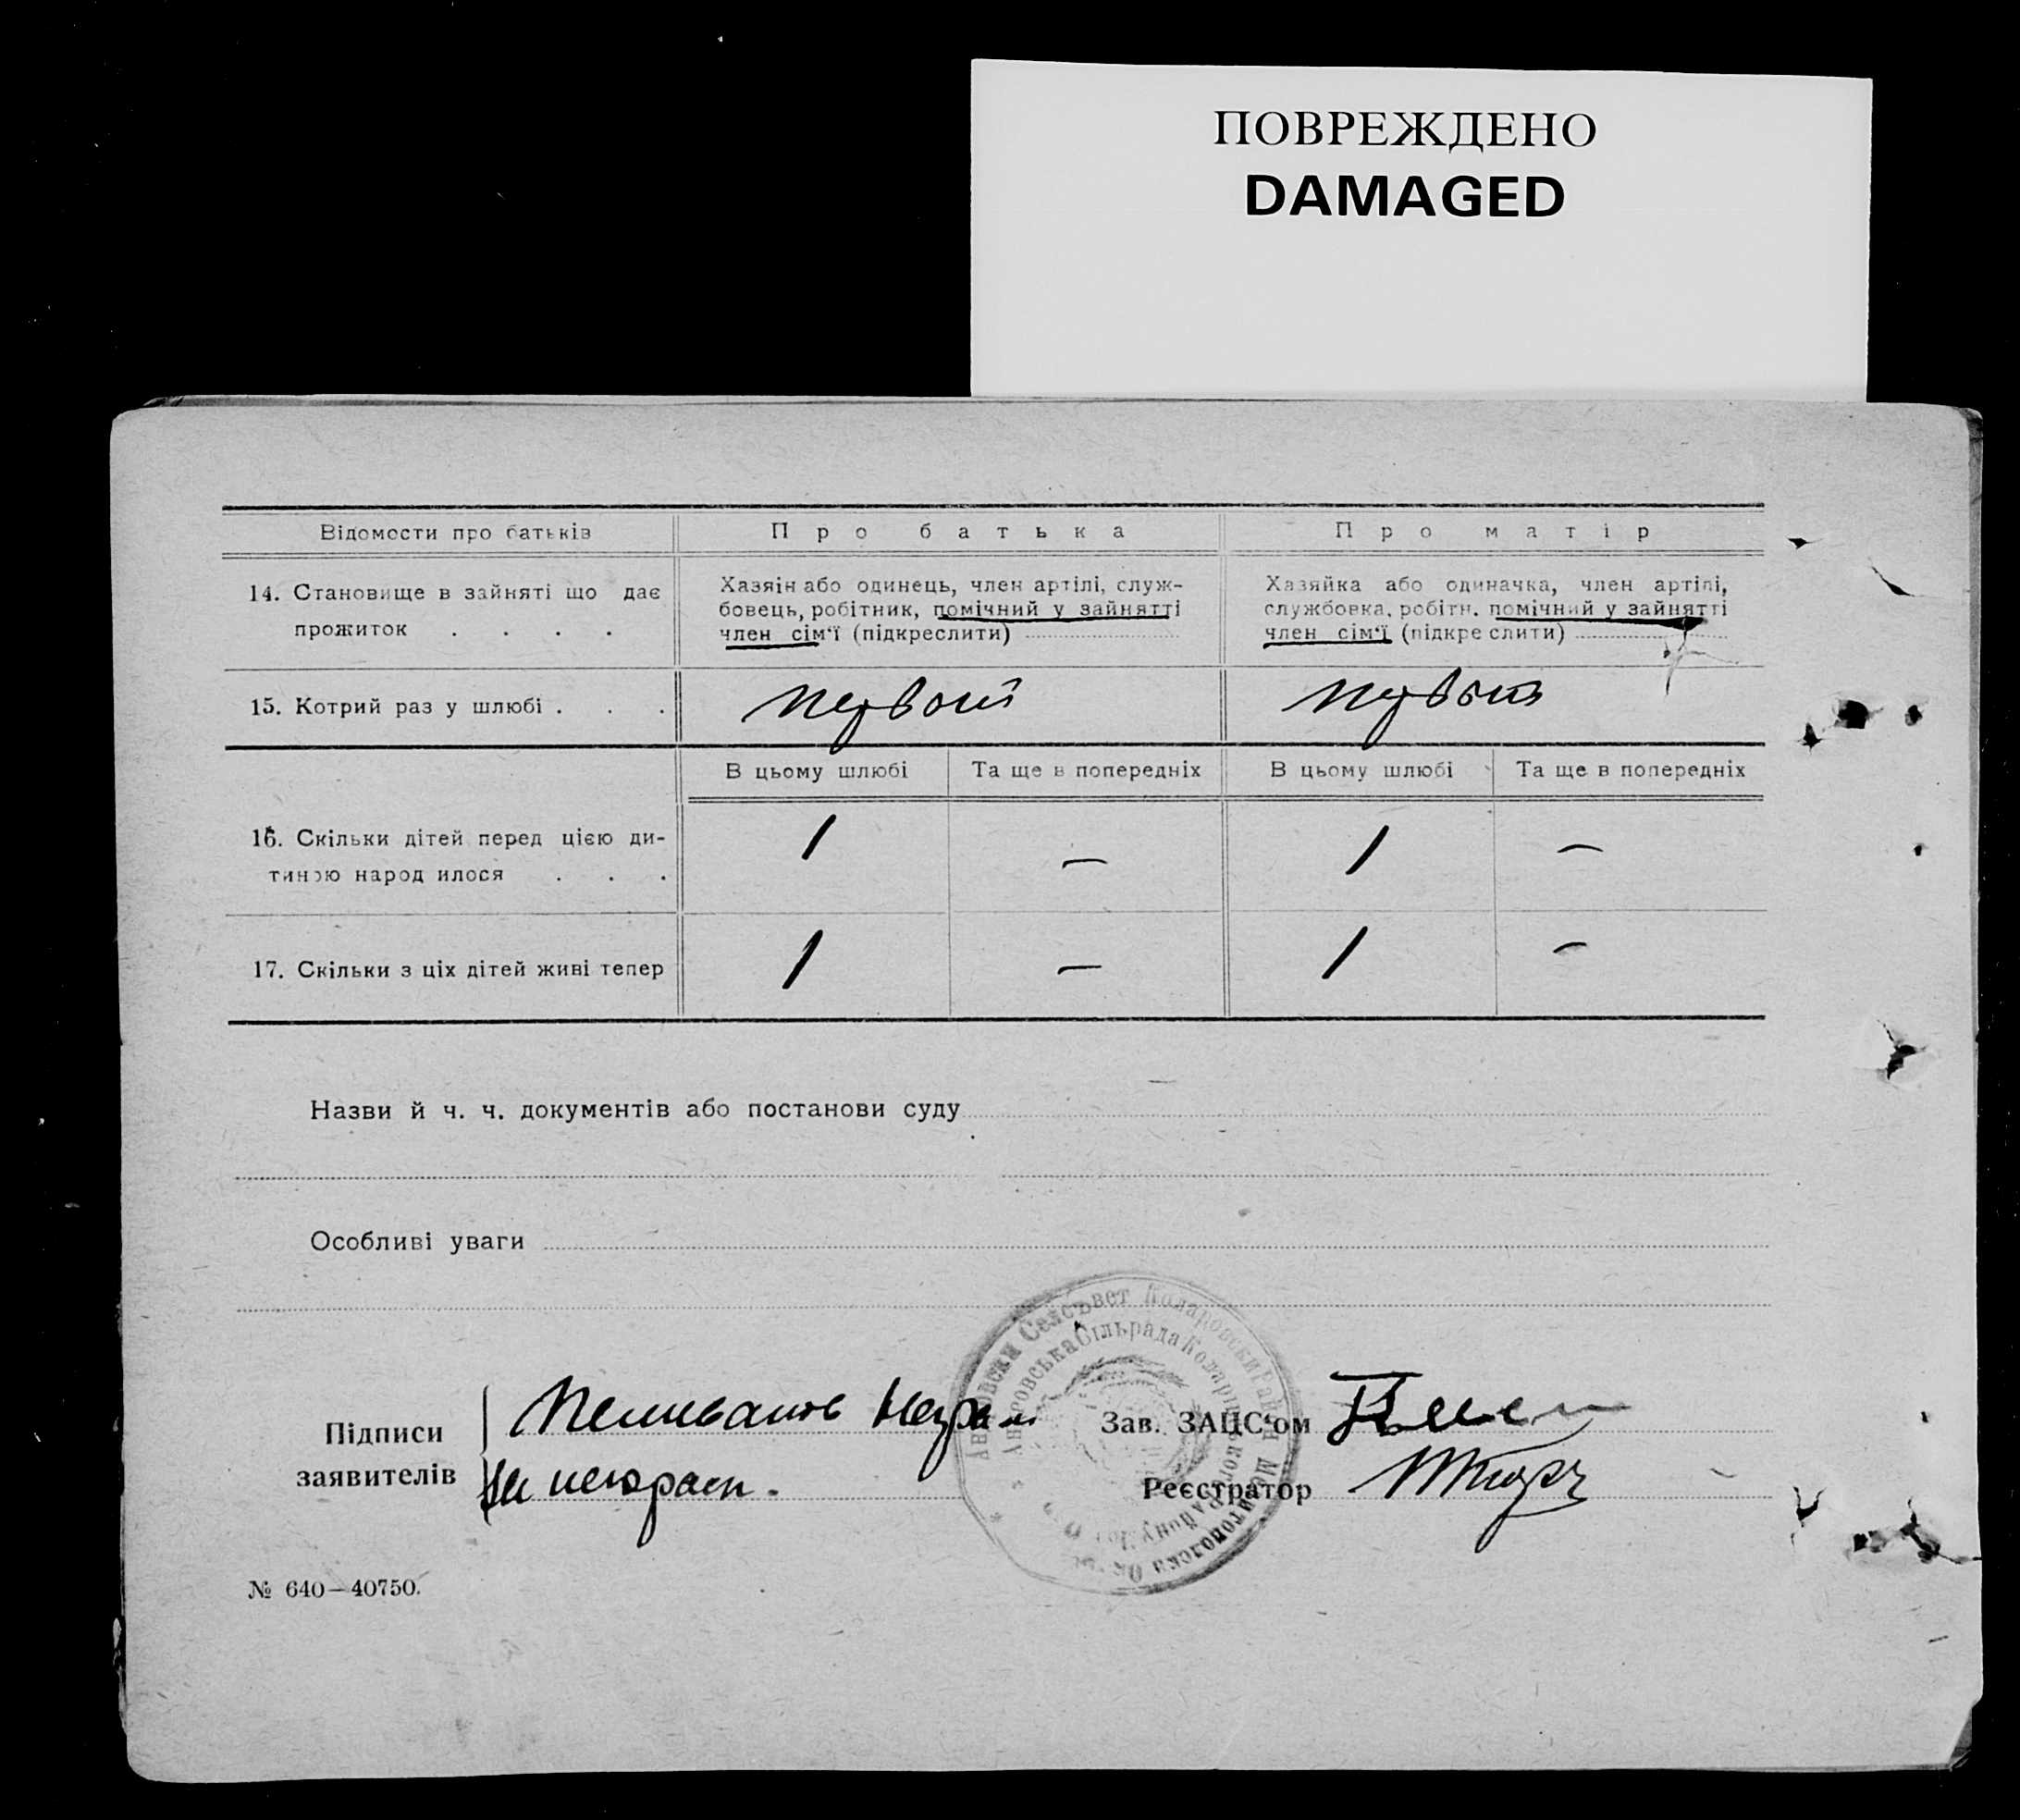 ПОВРЕЖДЕНО
DAMAGED
Відомости про батьків
Про батька
Про матір
14. Становище в зайняті що дає
прожиток . . . .
Хазяін або одинець, член артілі, служ-
бовець, робітник, помічний у зайнятті
член сім'ї (підкреслити)
Хазяйка або одиначка, член артілі,
службовка, робітн. помічний у зайнятті
член сім'ї (підкре слити)
15. Котрий раз у шлюбі . . .
первый
первый
В цьому шлюбі
Та ще в попередніх
В цьому шлюбі
Та ще в попередніх
16. Скільки дітей перед цією ди-
тиною народ илося . . .
1
—
1
—
17. Скільки з ціх дітей живі тепер
1
—
1
—
Назви й ч. ч. документів або постанови суду
Особливі уваги
Селсъвет Коларовски
Сільрада
Підписи
заявителів
Пеливанов
за неграм.
Зав. ЗАЦС'ом
Реєстратор
№ 640—40750.